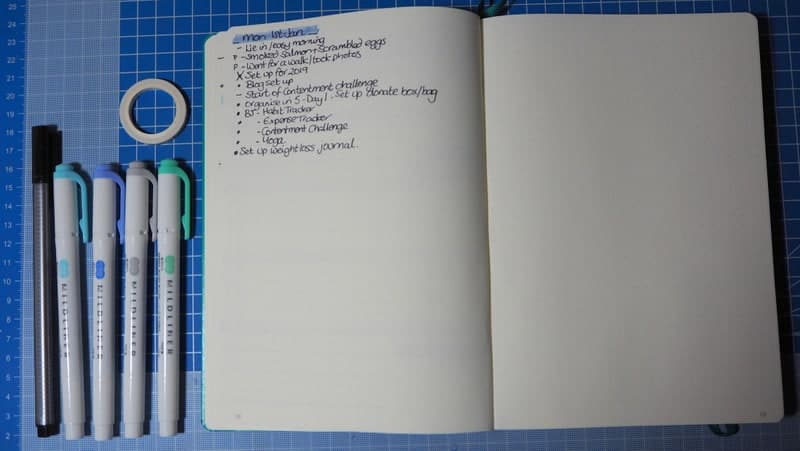 Mon 1st Jan
- Lie in / easy morning
- P - Smoked Salmon + Scrambled eggs
P - Went for a walk / took photos
X Set up for 2019
• Blog set up
- Start of Contentment challenge
• Organise in 5 - Day 1 - Set up donate box/bag
• BJ - Habit Tracker
• - Expense Tracker
• - Contentment Challenge
• - Yoga
• Set up weightloss journal.
MILDLINER
MILDLINER
MILDLINER
MILDLINER
26
25
24
23
22
21
20
19
18
17
16
15
14
13
12
11
10
9
8
7
6
5
4
3
2